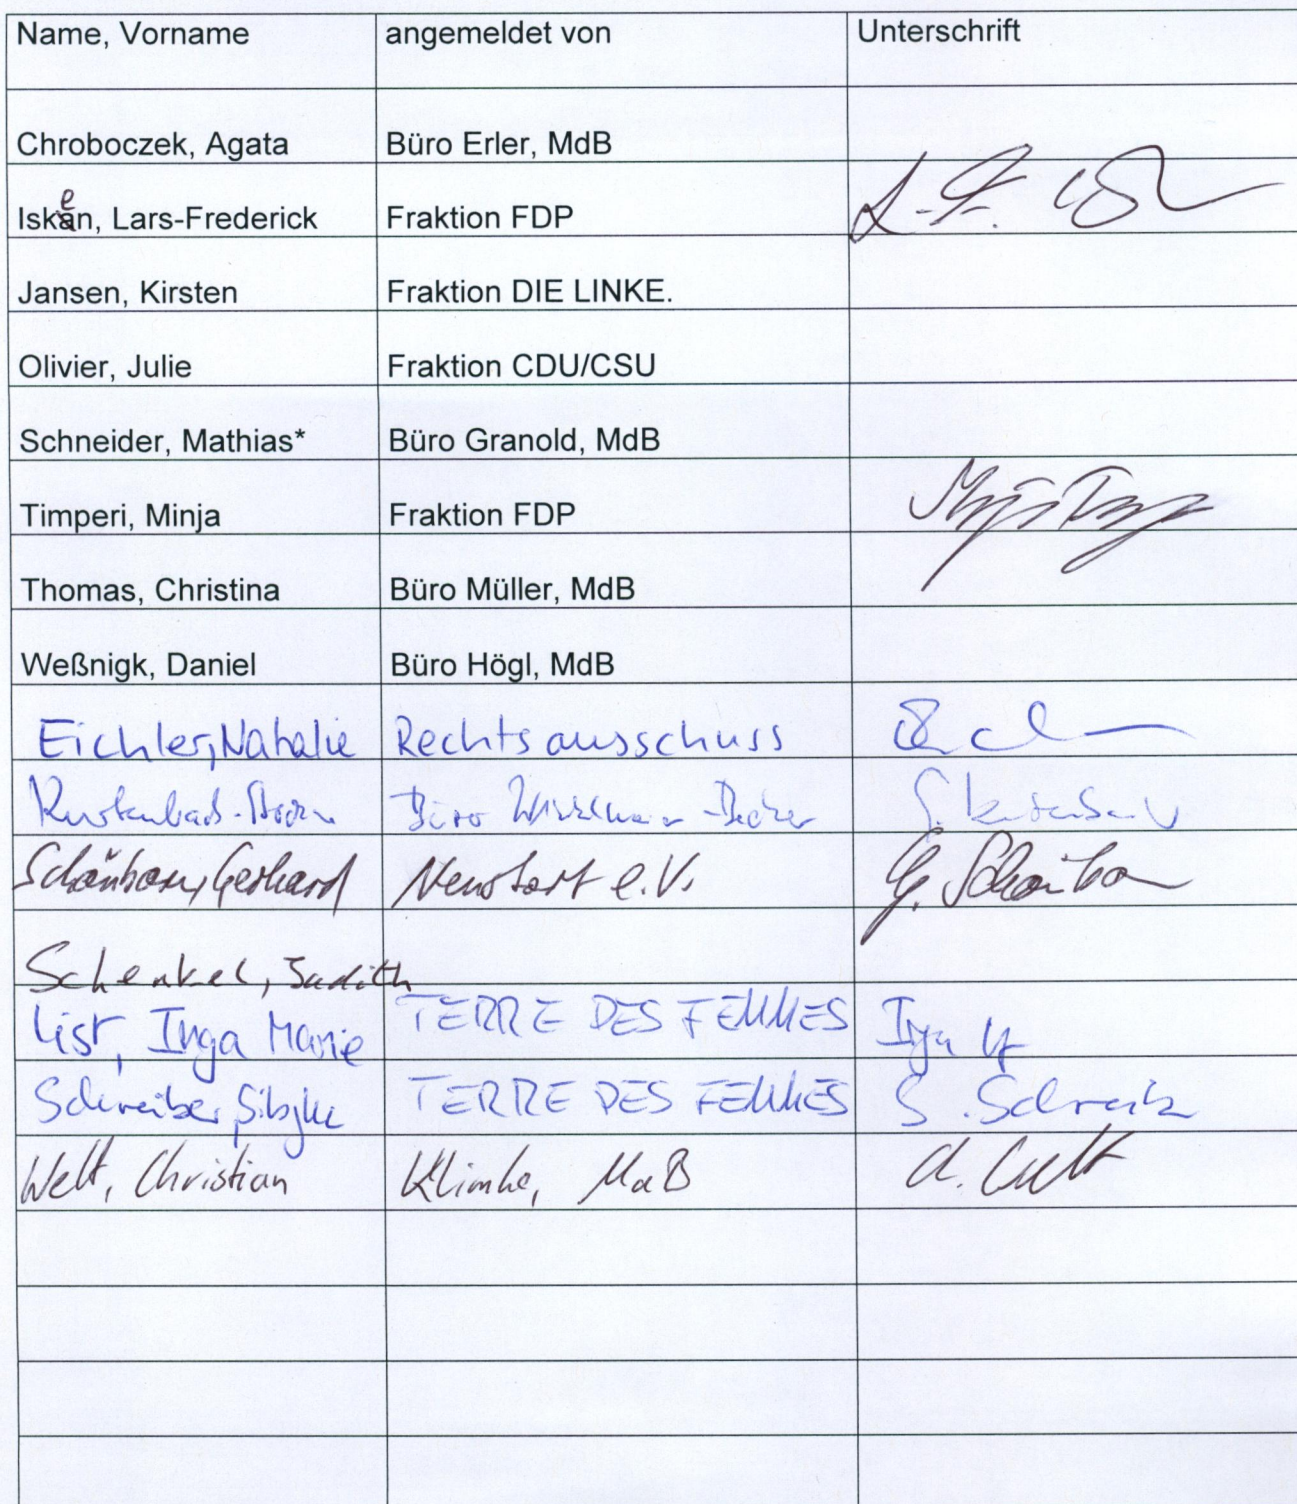 Name, Vorname angemeldet von Unterschrift
Chroboczek, Agata Büro Erler, MdB
Isken, Lars-Frederick Fraktion FDP
Jansen, Kirsten Fraktion DIE LINKE.
Olivier, Julie Fraktion CDU/CSU
Schneider, Mathias* Büro Granold, MdB
Timperi, Minja Fraktion FDP
Thomas, Christina Büro Müller, MdB
Weßnigk, Daniel Büro Högl, MdB
Eichler, Natalie Rechtsausschuss
Büro
Gerhard Neustart e.V. G.
Schenkel, Judith
List, Inga Marie TERRE DES FEMMES Inga
Schreiber, Sibylle TERRE DES FEMMES S. Schreib
Welt, Christian Klimke, MdB C. Welt